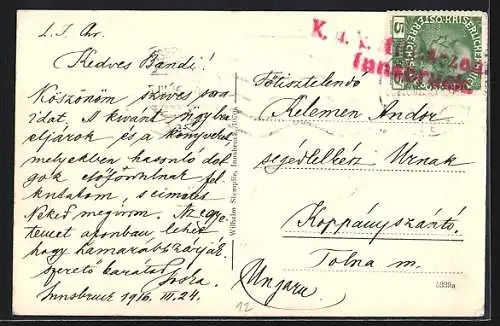 L. J. Chr.
Kedves Bandi!
Köszönöm szíves sorai-
dat. A kívánt ügyben
eljárok és a könyveket
melyekben hasonló dol-
gok előfordulnak fel
kutatom, s címüket
Neked megírom. Az egye-
temet azonban lehet
hogy hamarabb zárják.
szerető barátod Jóska
Innsbruck 1916. III. 24.
Wilhelm Stempfle, Innsbruck
K. u. k.
Innsbruck
5
Főtisztelendő
Kelemen Andor
segédlelkész Urnak
Koppányszántó
Tolna m.
Ungarn
12